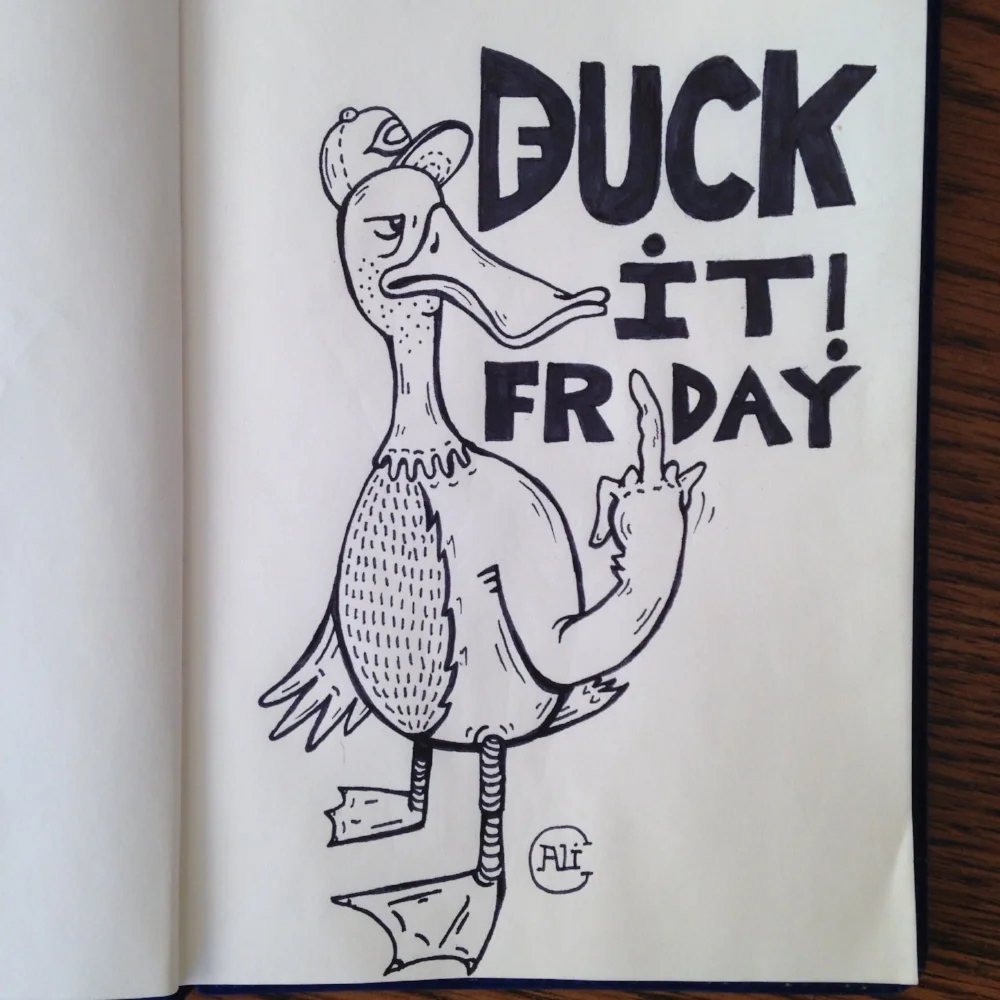 DUCK
İT!
FRİDAY
Ali